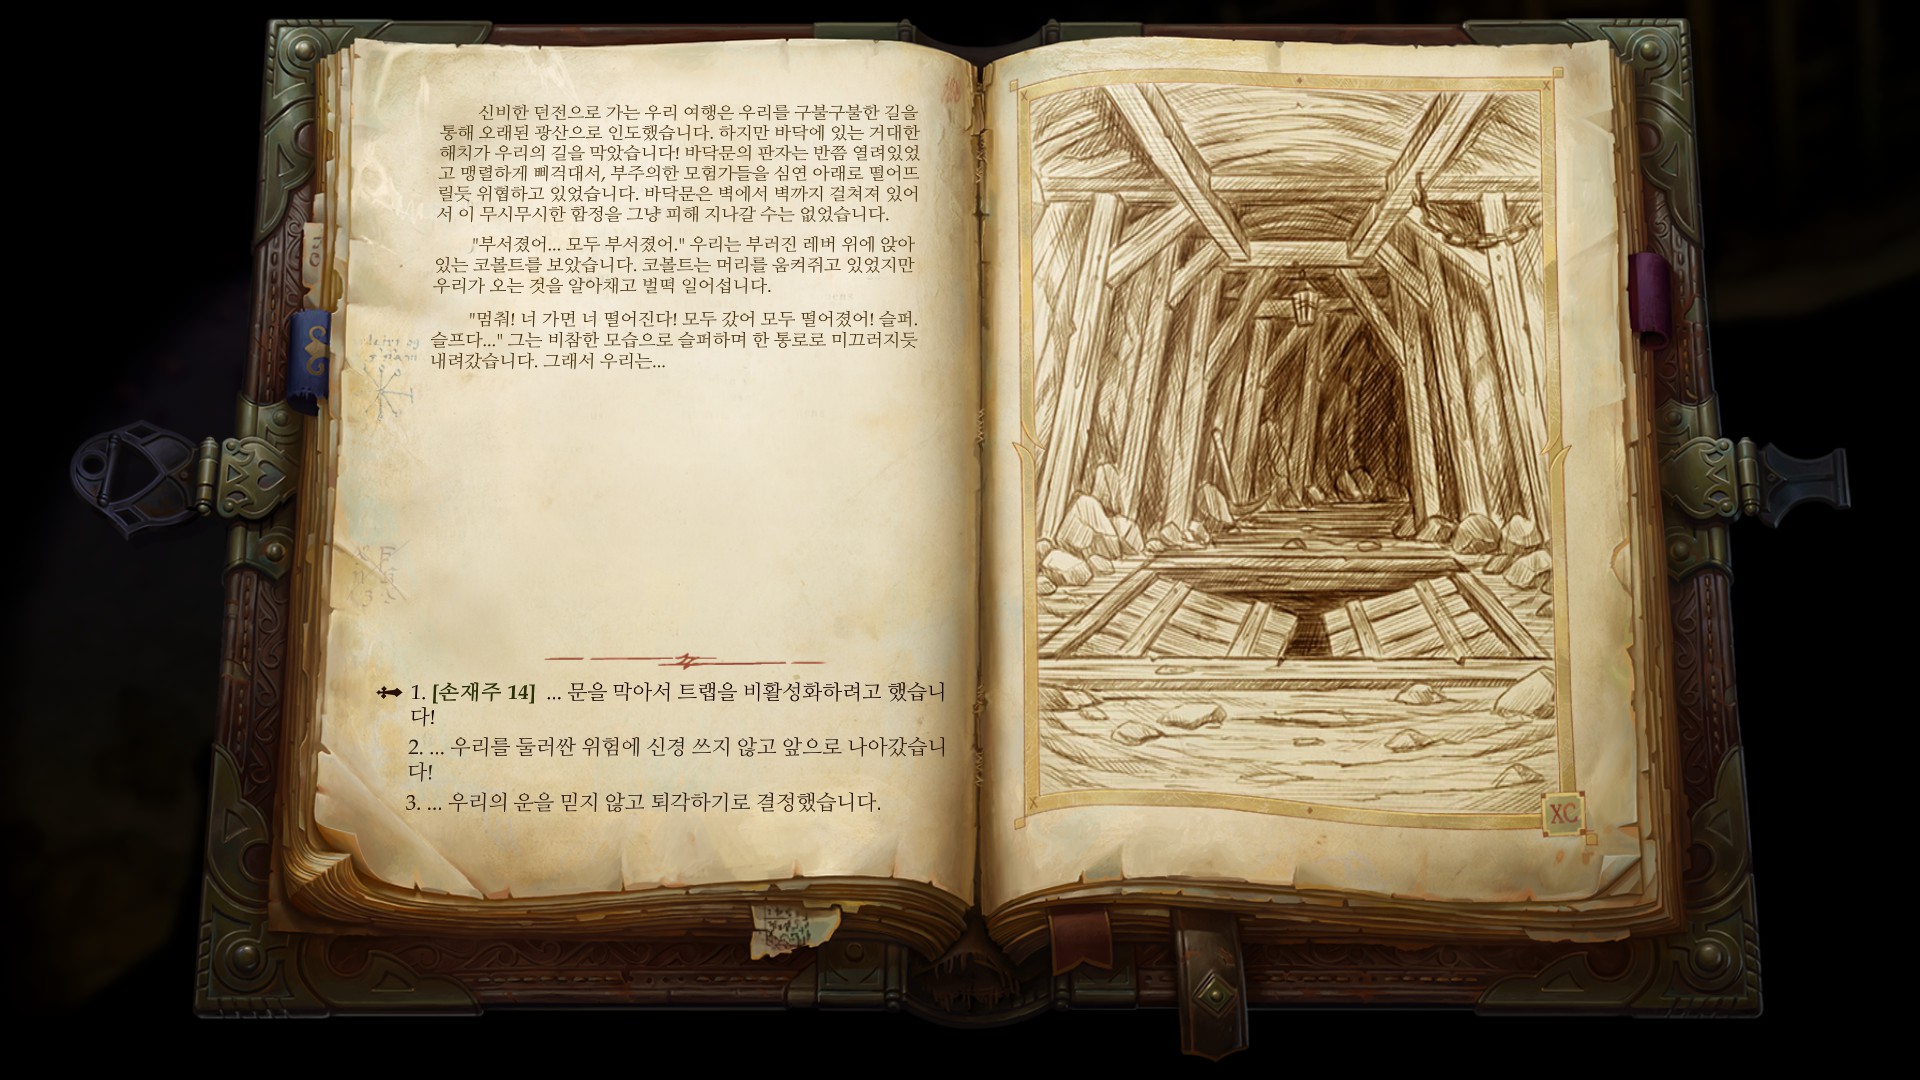 신비한 던전으로 가는 우리 여행은 우리를 구불구불한 길을
통해 오래된 광산으로 인도했습니다. 하지만 바닥에 있는 거대한
해치가 우리의 길을 막았습니다! 바닥문의 판자는 반쯤 열려있었
고 맹렬하게 삐걱대서, 부주의한 모험가들을 심연 아래로 떨어뜨
릴듯 위협하고 있었습니다. 바닥문은 벽에서 벽까지 걸쳐져 있어
서 이 무시무시한 함정을 그냥 피해 지나갈 수는 없었습니다.
"부서졌어... 모두 부서졌어." 우리는 부러진 레버 위에 앉아
있는 코볼트를 보았습니다. 코볼트는 머리를 움켜쥐고 있었지만
우리가 오는 것을 알아채고 벌떡 일어섭니다.
"멈춰! 너 가면 너 떨어진다! 모두 갔어 모두 떨어졌어! 슬퍼.
슬프다..." 그는 비참한 모습으로 슬퍼하며 한 통로로 미끄러지듯
내려갔습니다. 그래서 우리는...
1. [손재주 14] ... 문을 막아서 트랩을 비활성화하려고 했습니
다!
2. ... 우리를 둘러싼 위험에 신경 쓰지 않고 앞으로 나아갔습니
다!
3. ... 우리의 운을 믿지 않고 퇴각하기로 결정했습니다.
XC